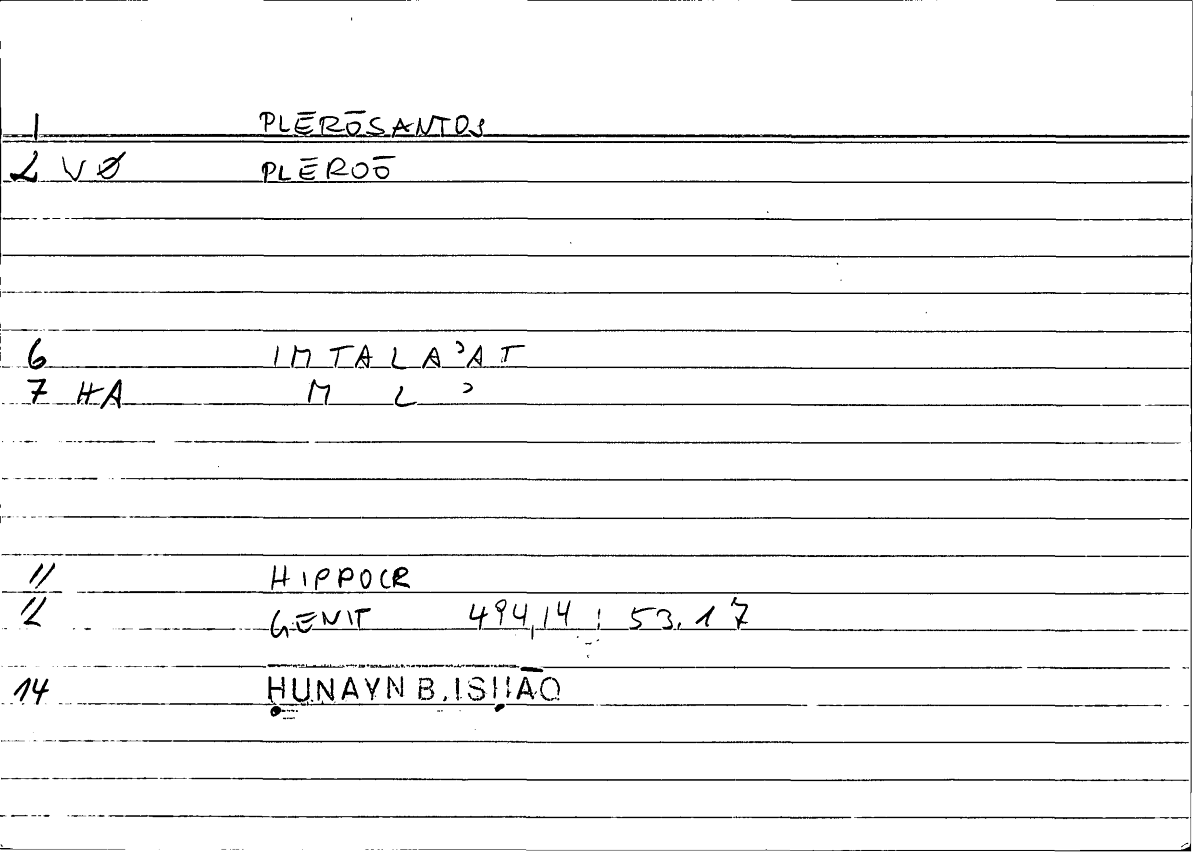 1 PLĒRŌSANTOS
2 VØ PLĒROŌ
6 IMTALAʾAT
7 HA M L ʾ
11 HIPPOCR
12 GENIT 494,14 ; 53.17
14 ḤUNAYN B. ISḤĀQ